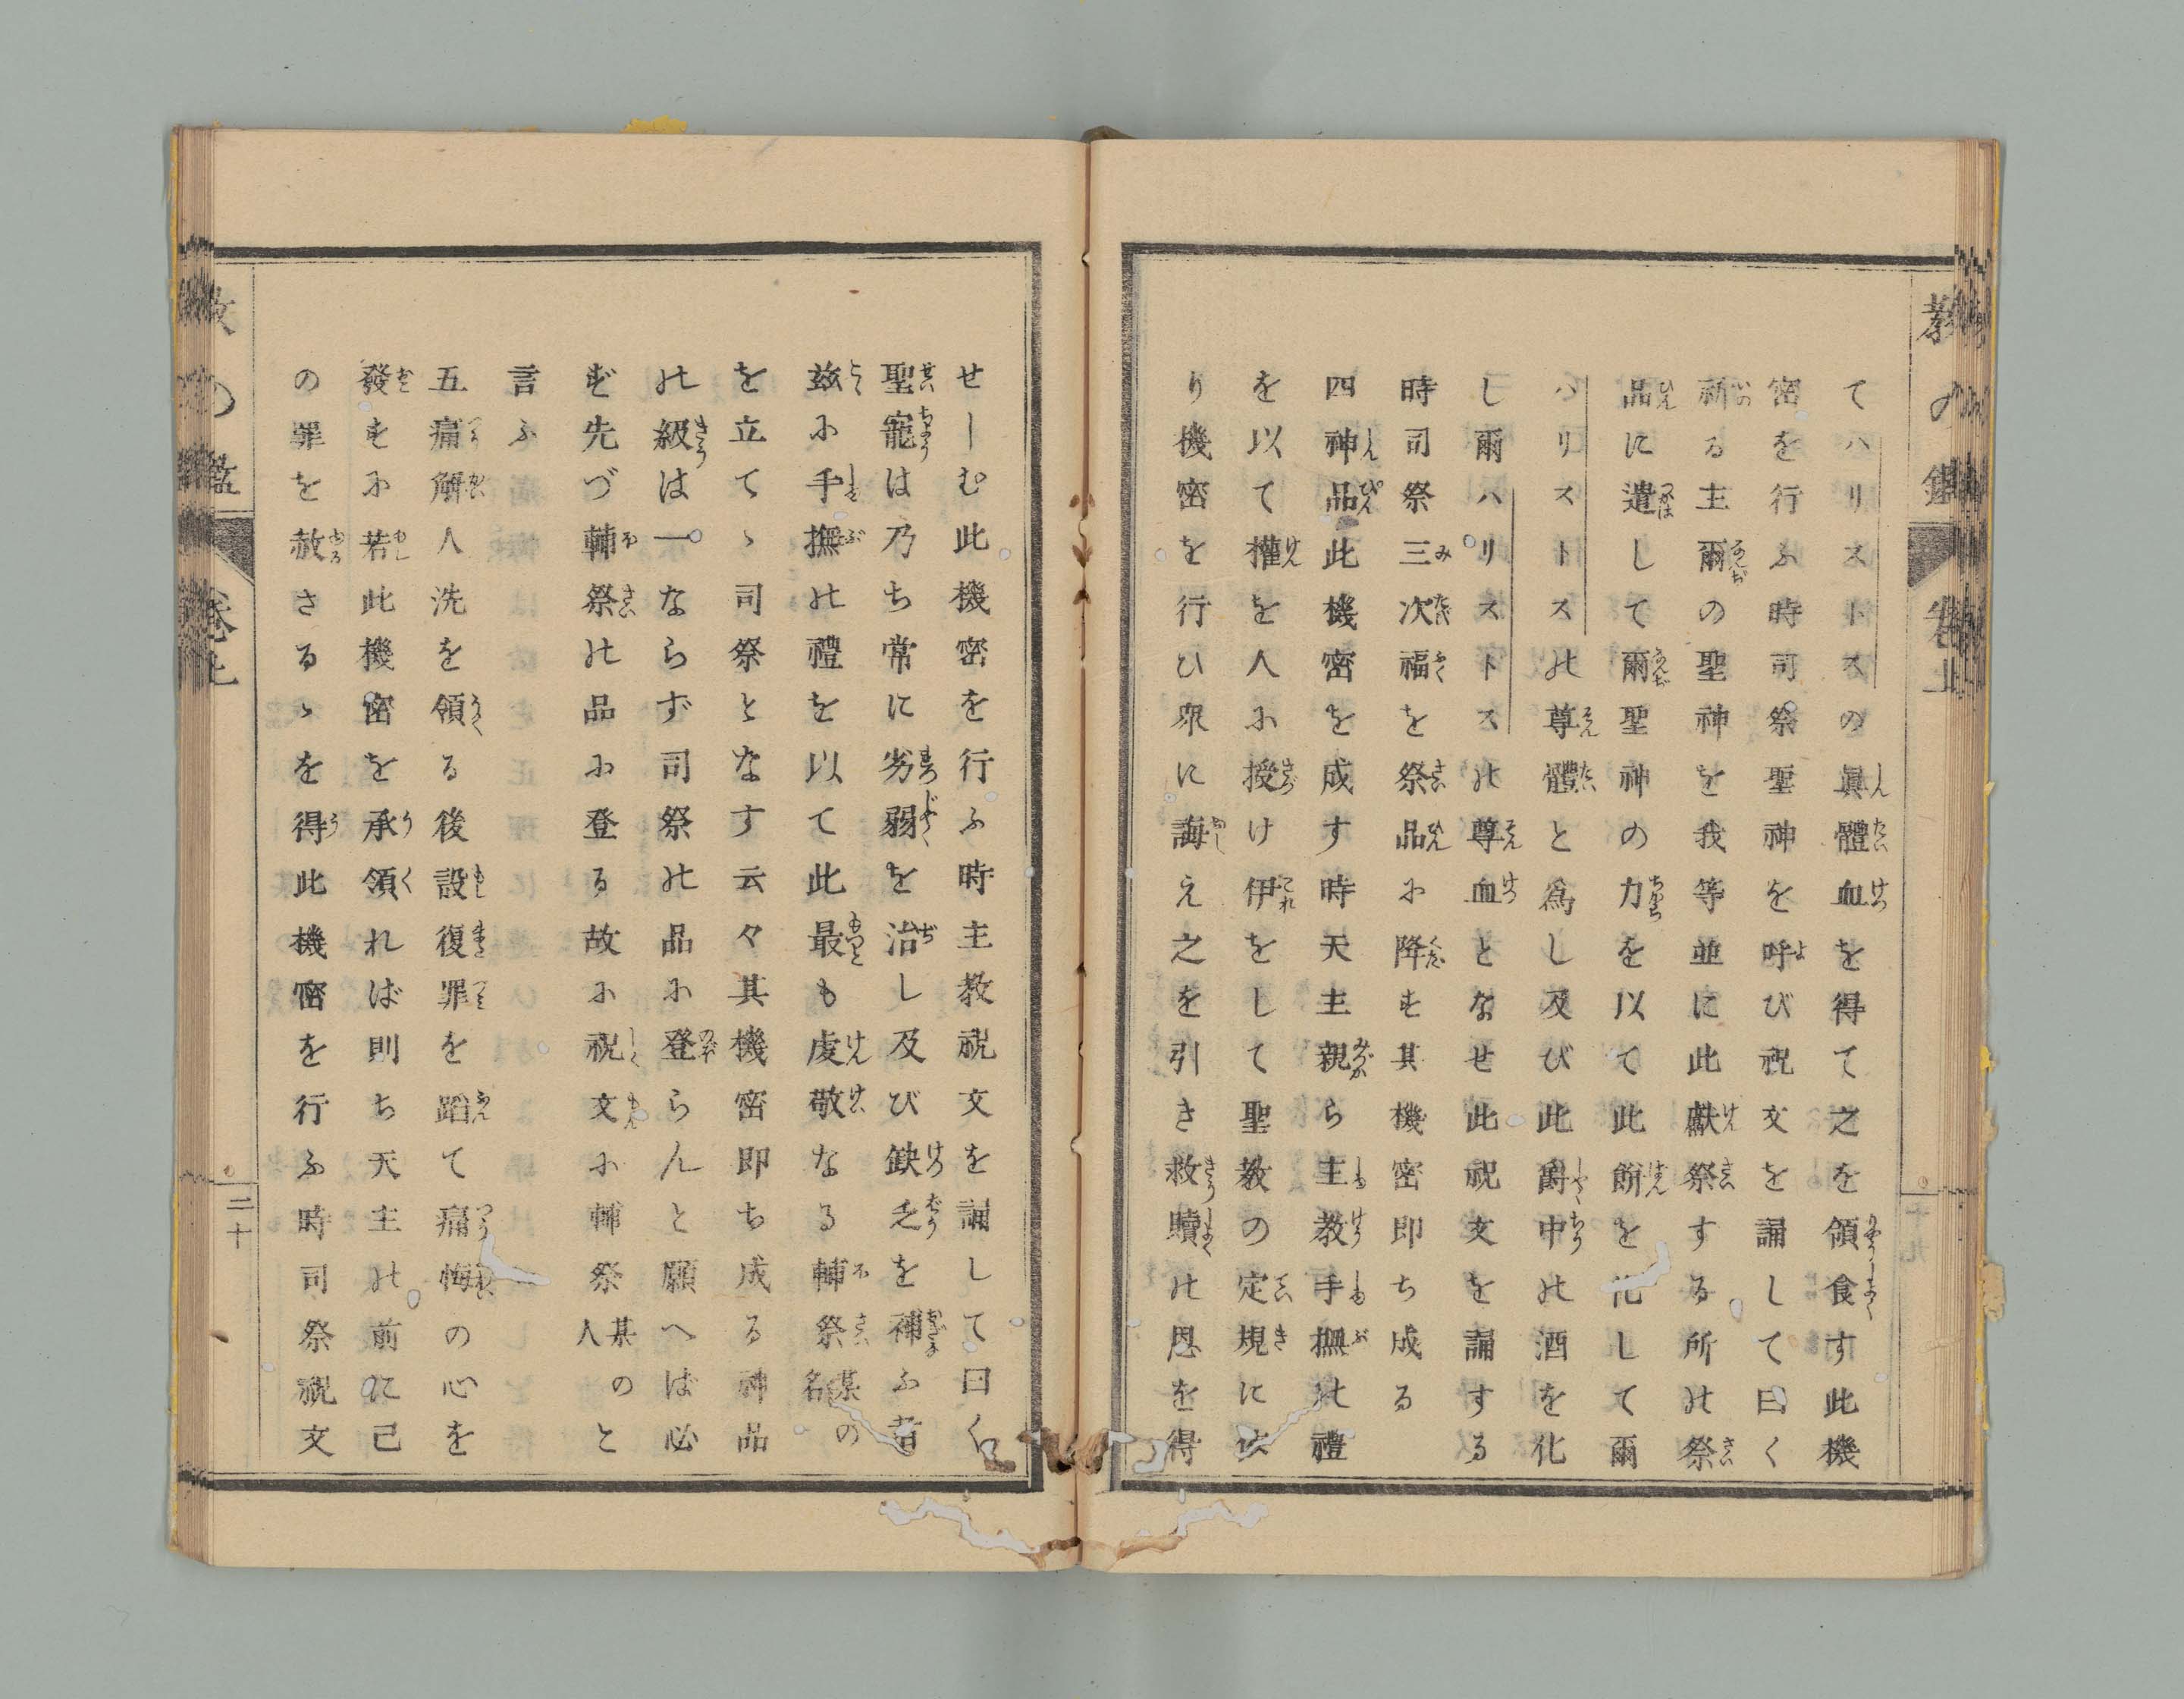 教の鑑 巻上 十九
てハリストスの眞體血を得て之を領食す此機
密を行ふ時司祭聖神を呼び祝文を誦して曰く
祈る主爾の聖神を我等並に此獻祭する所の祭
品に遣して爾聖神の力を以て此餅を化して爾
ハリストスの尊體と爲し及び此爵中の酒を化
し爾ハリストスの尊血となせ此祝文を誦する
時司祭三次福を祭品に降す其機密即ち成る
四神品此機密を成す時天主親ら主教手撫の禮
を以て權を人に授け伊をして聖教の定規に依
り機密を行ひ衆に誨え之を引き救贖の恩を得
せしむ此機密を行ふ時主教祝文を誦して曰く
聖寵は乃ち常に劣弱を治し及び缺乏を補ふ者
茲に手撫の禮を以て此最も虔敬なる輔祭某名の
を立てゝ司祭となす云々其機密即ち成る神品
の級は一ならず司祭の品に登らんと願へば必
ず先づ輔祭の品に登る故に祝文に輔祭某人のと
言ふ
五痛解人洗を領る後設復罪を蹈て痛悔の心を
發すに若此機密を承領れば則ち天主の前に己
の罪を赦さるゝを得此機密を行ふ時司祭祝文
教の鑑 巻上 二十